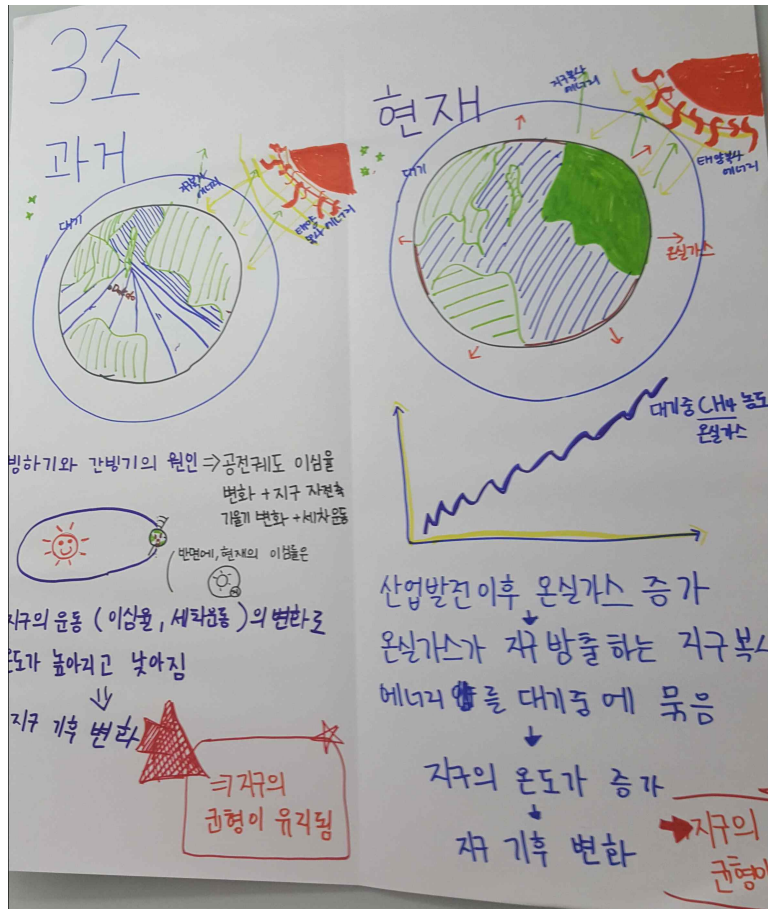 3조
과거
지구복사
에너지
대기
태양
복사 에너지
Dokdo
빙하기와 간빙기의 원인 ⇒ 공전궤도 이심율
변화 + 지구 자전축
기울기 변화 + 세차운동
반면에, 현재의 이심률은
지구의 운동 (이심율, 세차운동)의 변화로
온도가 높아지고 낮아짐
⇓
지구 기후 변화
⇒ 지구의
균형이 유지됨
현재
지구복사
에너지
대기
태양복사
에너지
온실가스
대기중 CH4 농도
온실가스
산업발전이후 온실가스 증가
↓
온실가스가 지구 방출하는 지구복사
에너지를 대기중에 묶음
↓
지구의 온도가 증가
↓
지구 기후 변화
➡지구의
균형이